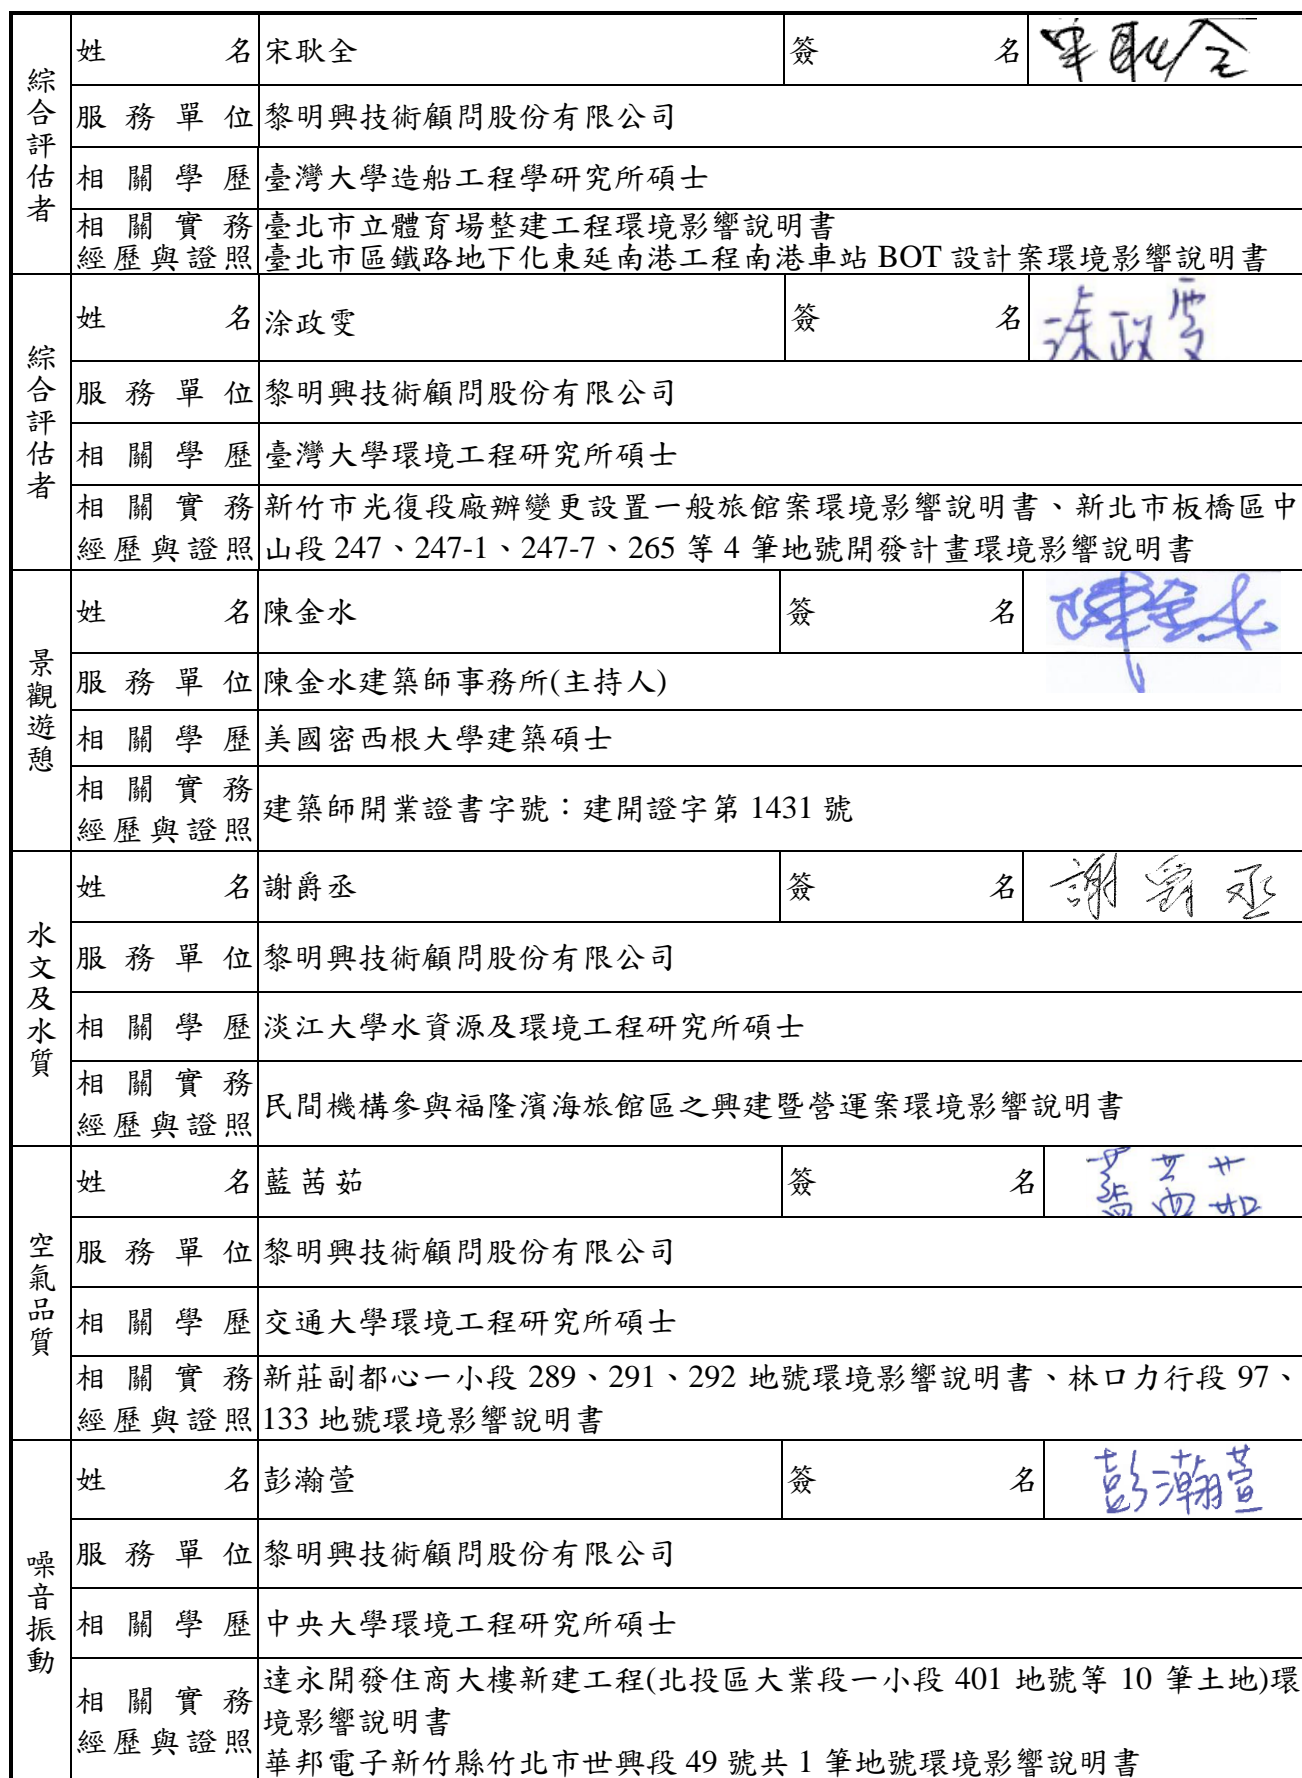 綜合評估者
姓名 宋耿全 簽名 宋耿全
服務單位 黎明興技術顧問股份有限公司
相關學歷 臺灣大學造船工程學研究所碩士
相關實務 臺北市立體育場整建工程環境影響說明書
經歷與證照 臺北市區鐵路地下化東延南港工程南港車站 BOT 設計案環境影響說明書
綜合評估者
姓名 涂政雯 簽名 涂政雯
服務單位 黎明興技術顧問股份有限公司
相關學歷 臺灣大學環境工程研究所碩士
相關實務 新竹市光復段廠辦變更設置一般旅館案環境影響說明書、新北市板橋區中
經歷與證照 山段 247、247-1、247-7、265 等 4 筆地號開發計畫環境影響說明書
景觀遊憩
姓名 陳金水 簽名 陳金水
服務單位 陳金水建築師事務所(主持人)
相關學歷 美國密西根大學建築碩士
相關實務
經歷與證照 建築師開業證書字號：建開證字第 1431 號
水文及水質
姓名 謝爵丞 簽名 謝爵丞
服務單位 黎明興技術顧問股份有限公司
相關學歷 淡江大學水資源及環境工程研究所碩士
相關實務
經歷與證照 民間機構參與福隆濱海旅館區之興建暨營運案環境影響說明書
空氣品質
姓名 藍茜茹 簽名 藍茜茹
服務單位 黎明興技術顧問股份有限公司
相關學歷 交通大學環境工程研究所碩士
相關實務 新莊副都心一小段 289、291、292 地號環境影響說明書、林口力行段 97、
經歷與證照 133 地號環境影響說明書
噪音振動
姓名 彭瀚萱 簽名 彭瀚萱
服務單位 黎明興技術顧問股份有限公司
相關學歷 中央大學環境工程研究所碩士
相關實務 達永開發住商大樓新建工程(北投區大業段一小段 401 地號等 10 筆土地)環
經歷與證照 境影響說明書
華邦電子新竹縣竹北市世興段 49 號共 1 筆地號環境影響說明書